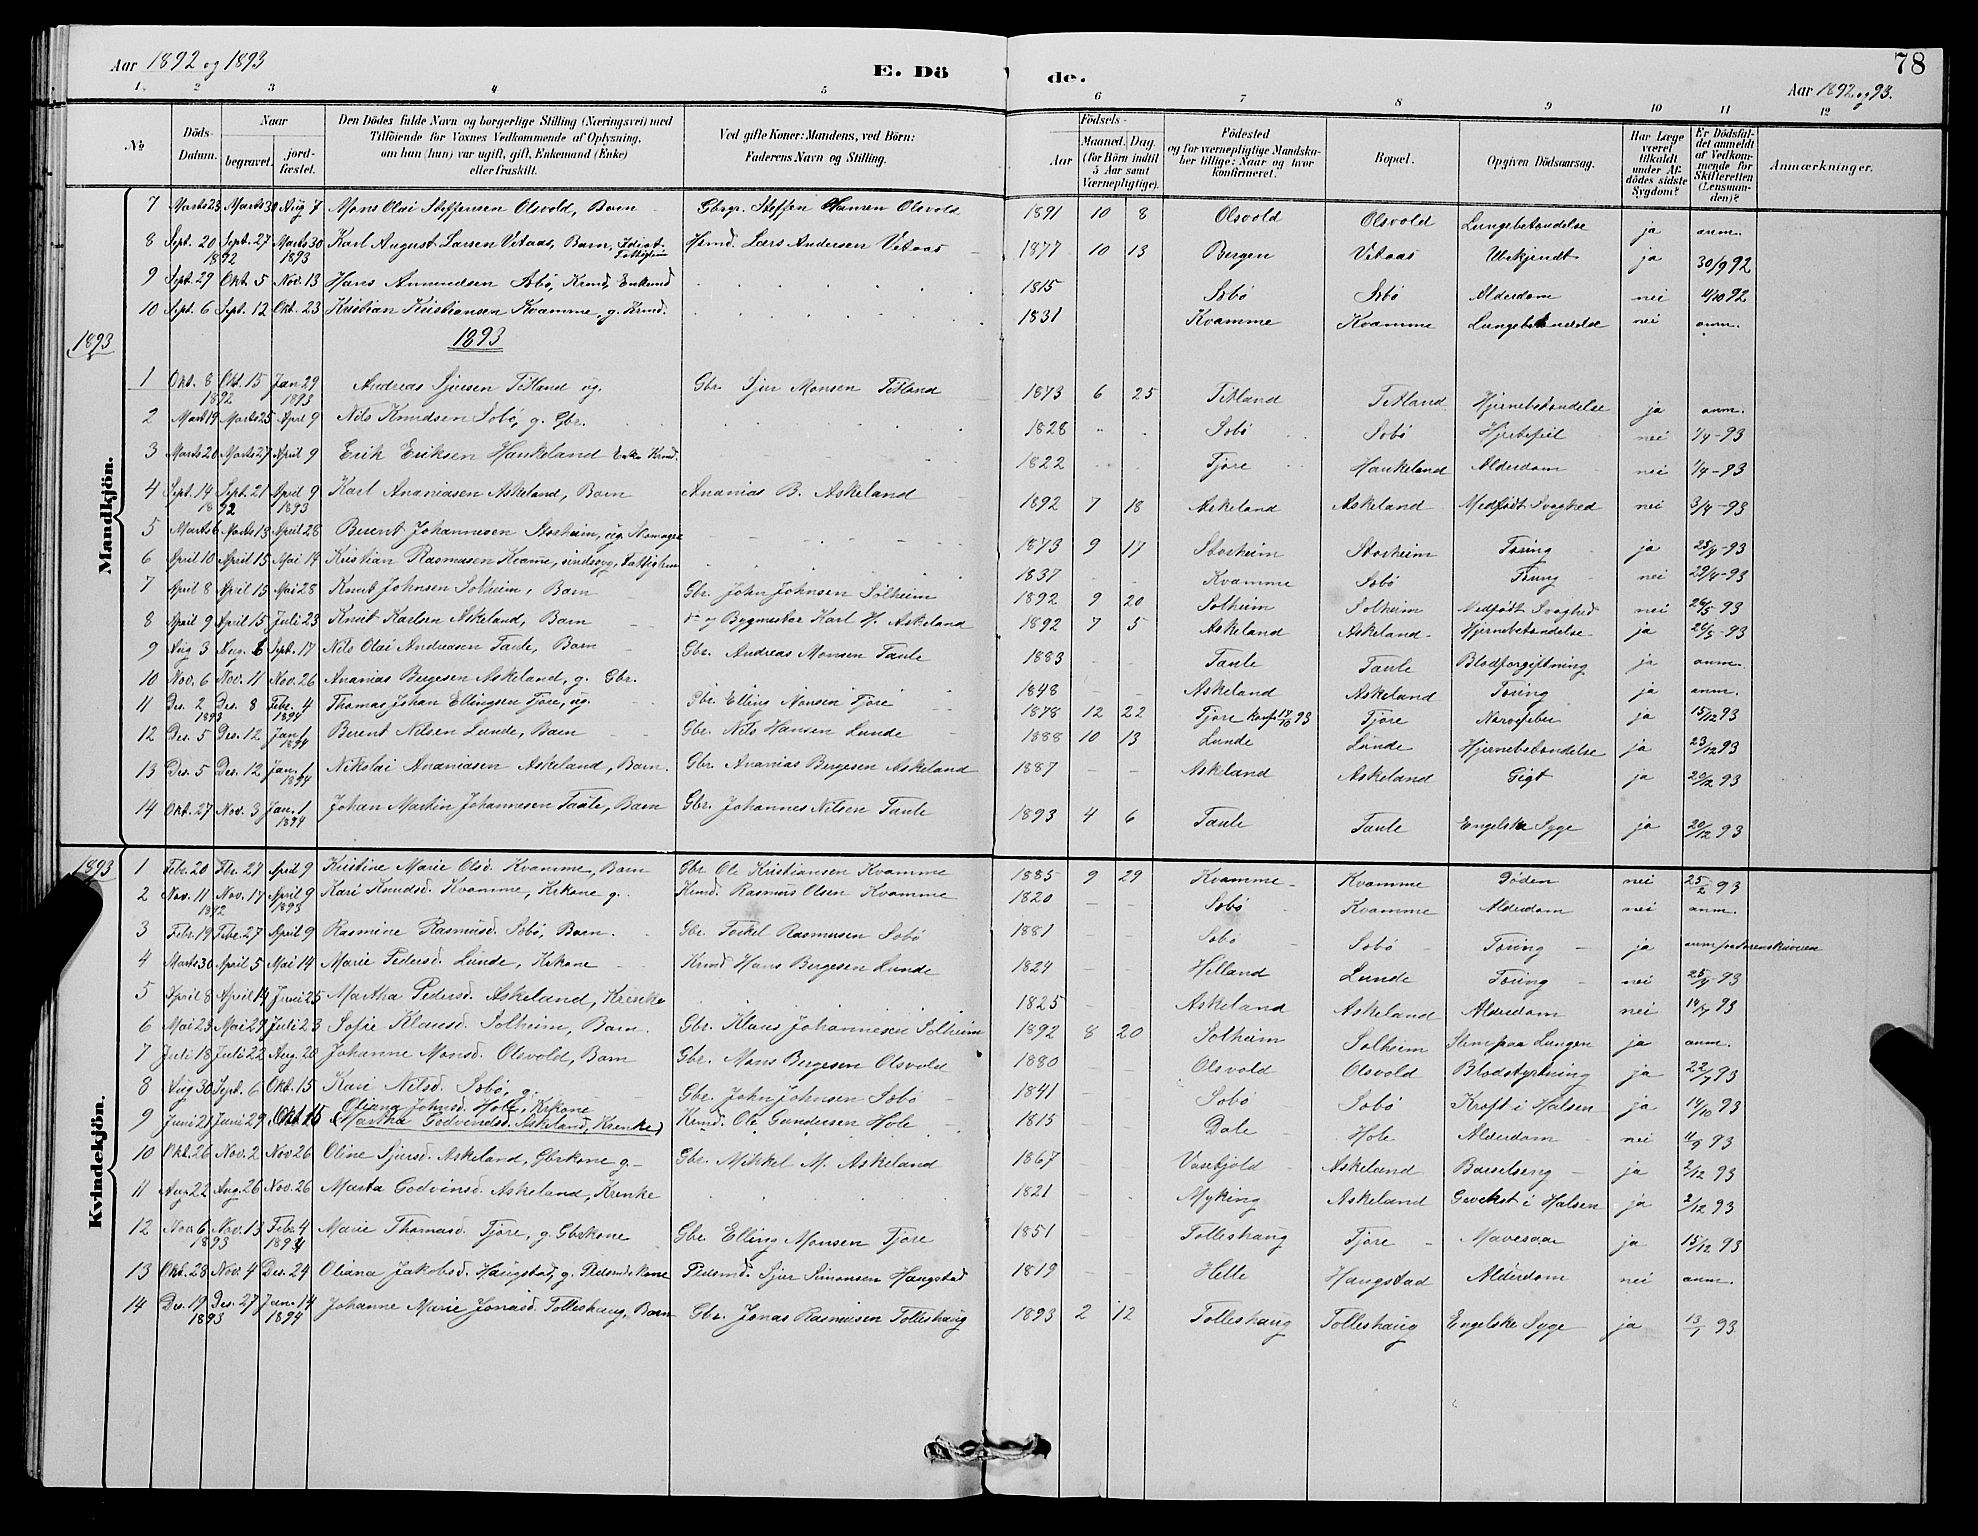 78
Aar 1892 og 1893
E. Dö de.
Aar 1892 og 93.
1. 2 3 4 5 6 7 8 9 10 11 12
No
Döds-Datum.
Naar begravet. jordfæstet.
Den Dödes fulde Navn og borgerlige Stilling (Næringsvei) med Tilföiende for Voxnes Vedkommende af Oplysning, om han (hun) var ugift, gift, Enkemand (Enke) eller fraskilt.
Ved gifte Koner: Mandens, ved Börn: Faderens Navn og Stilling.
Födsels-
Aar Maaned. Dag (for Börn indtil 5 Aar samt Værnepligtige).
Födested og for værnepligtige Mandskaber tillige: Naar og hvor konfirmeret.
Bopæl.
Opgiven Dödsaarsag.
Har Læge været tilkaldt under Afdödes sidste Sygdom?
Er Dödsfaldet anmeldt af Vedkommende for Skifteretten (Lensmanden)?
Anmærkninger.
Mandkjön.
7 Marts 23 Marts 30 Aug 7 Mons Olai Steffensen Olsvold, Barn Gbrgr. Steffen Hansen Olsvold 1891 10 8 Olsvold Olsvold Lungebetændelse ja anm.
8 Sept. 20 1892 Sept. 27 Marts 30 1893 Karl August Larsen Vetaas, Barn, Idiot Fattiglem Hsmd. Lars Andersen Vetaas 1877 10 13 Bergen Vetaas Ubekjendt ja 30/9 92
9 Sept. 29 Okt. 5 Nov. 13 Hans Amundsen Sobö, Krmd, Enkemd 1815 Sobö Sobö Alderdom nei 4/10 92
10 Sept. 6 Sept. 12 Okt. 23 Kristian Kristiansen Kvamme, g. Krmd. 1831 Kvamme Kvamme Lungebetændelse nei anm.
1893
1893
1 Okt. 8 1892 Okt. 15 Jan 29 1893 Andreas Sjursen Titland ug. Gbr. Sjur Monsen Titland 1873 6 25 Titland Titland Hjernebetændelse ja anm.
2 Mart 19 Marts 25 April 9 Nils Knudsen Sobö, g. Gbr. 1828 Sobö Sobö Hjertefeil nei 1/4-93
3 Marts 20 Marts 27 April 9 Erik Eriksen Haukeland Krmd. 1822 Fjore Haukeland Alderdom nei 1/4-93
4 Sept. 14 Sept. 21 1892 April 9 1893 Karl Ananiasen Askeland, Barn Ananias B. Askeland 1892 7 18 Askeland Askeland Medfödt Svaghed nei 3/4-93
5 Marts 6 Marts 13 April 28 Berent Johannesen Storheim, ug. 1873 9 17 Storheim Storheim Tæring ja 25/4-93
6 April 10 April 15 Mai 14 Kristian Rasmusen Kvame, sindssyg, Fattiglem 1837 Kvamme Sobö Tæring nei 29/4-93
7 April 8 April 15 Mai 28 Knut Johnsen Solheim, Barn Gbr. John Johnsen Solheim 1892 9 20 Solheim Solheim Medfödt Svaghed nei 26/5 93
8 April 9 April 15 Juli 23 Knut Karlsen Askeland, Barn og Bygmester Karl H. Askeland 1892 7 5 Askeland Askeland Hjernebetændelse ja 26/5-93
9 Aug 3 Aug. 6 Sept. 17 Nils Olai Andreasen Taule, Barn Gbr. Andreas Monsen Taule 1883 Taule Taule Blodforgiftning ja anm.
10 Nov. 6 Nov. 11 Nov. 26 Ananias Bergesen Askeland, g. Gbr. 1848 Askeland Askeland Tæring ja anm.
11 Des. 2 1893 Des. 8 Febr. 4 1894 Thomas Johan Ellingsen Fjore, ug. Gbr. Elling Monsen Fjore 1878 12 22 Fjore konf. 93 Fjore Nervefeber ja 15/12 93
12 Des. 5 Des. 12 Jan. 1 1894 Berent Nilsen Lunde, Barn Gbr. Nils Hansen Lunde 1888 10 13 Lunde Lunde Hjernebetændelse ja 23/12 93
13 Des. 5 Des. 12 Jan. 1 1894 Nikolai Ananiasen Askeland, Barn. Gbr. Ananias Bergesen Askeland 1887 Askeland Askeland Gigt ja 20/12 93
14 Okt. 27 Nov. 3 Jan. 1 1894 Johan Martin Johannesen Taule, Barn Gbr. Johannes Nilsen Taule 1893 4 6 Taule Taule Engelske Syge ja 20/12 93
1893
Kvindekjön.
1 Febr. 20 Fbr. 27 April 9 Kristine Marie Olsd. Kvamme, Barn Gbr Ole Kristiansen Kvamme 1885 9 29 Kvamme Kvamme Döden nei 25/2 93
2 Nov. 11 1892 Nov. 17 April 9 1893 Kari Knudsd. Kvamme, Krkone g. Krmd. Rasmus Olsen Kvamme 1820 Sobö Kvamme Alderdom nei anm.
3 Febr. 19 Febr. 27 April 9 Rasmine Rasmusd. Sobö, Barn. Gbr. Torkel Rasmusen Sobö 1881 Sobö Sobö Tæring ja anm
4 Marts 30 April 5 Mai 14 Marie Pedersd. Lunde, Krkone Krmd Hans Bergesen Lunde 1824 Helland Lunde Tæring nei 25/4 93
5 April 8 April 14 Juni 25 Martha Pedersd. Askeland, Krenke 1825 Askeland Askeland Alderdom nei 14/4 93
6 Mai 23 Mai 29 Juli 23 Sofie Klausd. Solheim, Barn. Gbr. Klaus Johannesen Solheim 1892 8 20 Solheim Solheim Slim paa Lungen ja anm.
7 Juli 18 Juli 22 Aug. 20 Johanne Monsd. Olsvold, Barn Gbr. Mons Bergesen Olsvold 1880 Olsvold Olsvold Blodstyrtning ja 22/7 93
8 Aug 30 Sept. 6 Okt. 15 Kari Nilsd. Sobö, g. Gbr. John Johnsen Sobö 1841 Sobö Sobö Kræft i Halsen ja 14/10 93
9 Juni 21 Juni 29 Okt. 15 Oliana Johnsd. Hole, Krkone (Martha Godvinsd. Askeland, Krenke) Krmd. Ole Gundersen Hole 1815 Dale Hole Alderdom nei 93
10 Okt. 26 Nov. 2 Nov 26 Oline Sjursd. Askeland, Gbrkone g. Gbr. Mikkel M. Askeland 1867 Askeland Barselseng ja 2/12 93
11 Aug 22 Aug. 26 Nov. 26 Marta Godvinsd. Askeland, Krenke 1821 Myking Askeland Gevekst i Halsen ja 2/12 93
12 Nov. 6 1893 Nov. 13 Febr 4 1894 Marie Thomasd. Fjore, g. Gbrkone Gbr Elling Monsen Fjore 1851 Tolleshaug Fjore Mavesaar ja 15/12 93
13 Okt. 28 Nov. 4 Des. 24 Oliana Jakobsd. Haugstad, g. Pedsmdskone Pedsmd. Sjur Simonsen Haugstad 1819 Helle Haugstad Alderdom nei anm.
14 Des. 19 1893 Des. 27 Jan. 14 1894 Johanne Marie Jonasd. Tolleshaug, Barn Gbr. Jonas Rasmusen Tolleshaug 1893 2 12 Tolleshaug Tolleshaug Engelske Syge ja 13/1 93